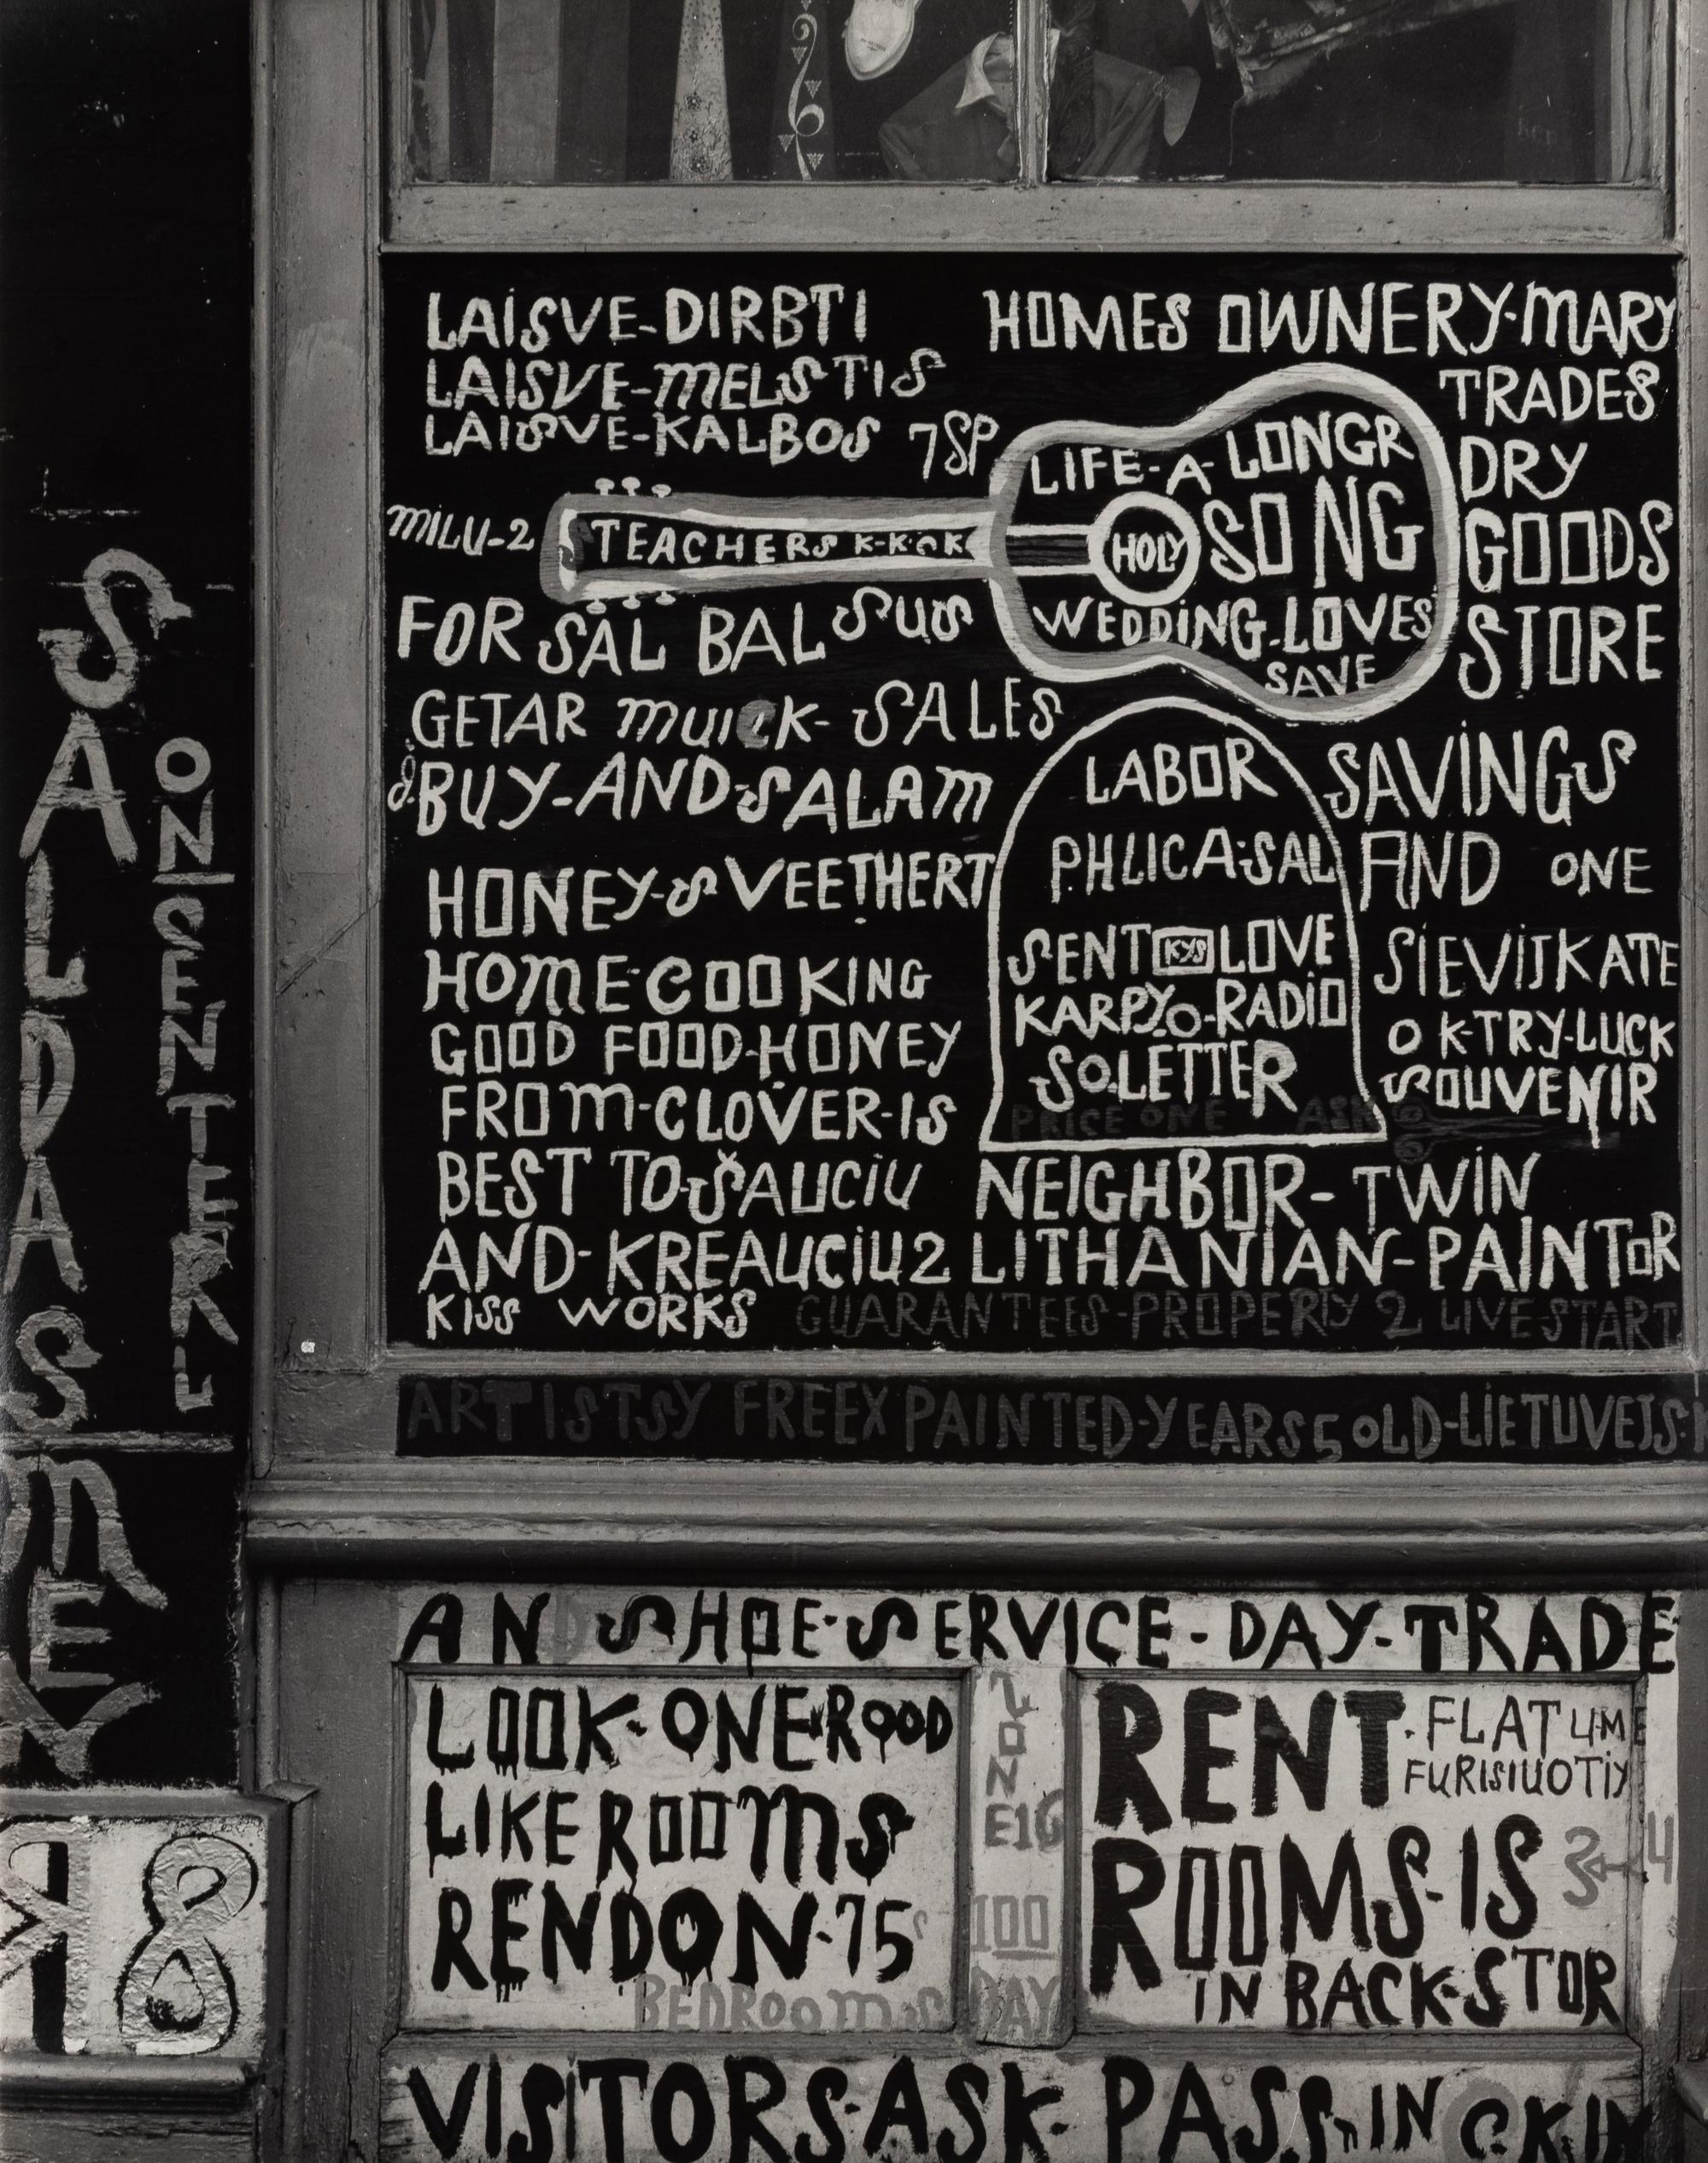 LAISVE-DIRBTI
LAISVE-MELSTIS
LAISVE-KALBOS 7SP
MILU-2
STEACHERS
FOR SAL BALSUS
GETAR SALES
BUY-AND-SALAM
HONEY-SVEETHERT
HOME-COOKING
GOOD FOOD-HONEY
FROM-CLOVER-IS
BEST TO-ŠAUCIU
AND-KREAUCIU2
KISS WORKS
HOMES OWNERY-MARY
TRADES
DRY
GOODS
STORE
LIFE-A-LONGR
HOLY SONG
WEDDING-LOVES
SAVE
LABOR
PHLICA-SAL
SENT KYS LOVE
KARPY.O-RADIO
SO-LETTER
PRICE ONE ASK
SAVINGS
AND ONE
SIEVIJKATE
OK-TRY-LUCK
SOUVENIR
NEIGHBOR-TWIN
LITHANIAN-PAINTOR
GUARANTEES-PROPERTY 2 LIVE START
ARTISTSY FREEX PAINTED-YEARS 5 OLD-LIETUVEJS
SALDAS
ONSENTERL
MEY
R8
AND SHOE-SERVICE-DAY-TRADE
LOOK-ONE-ROOD
LIKE ROOMS
RENDON-75
BEDROOMS
100
DAY
RENT-FLAT
FURISIUOTIY
ROOMS-IS 3
IN BACK-STOR
VISITORS-ASK-PASS-IN